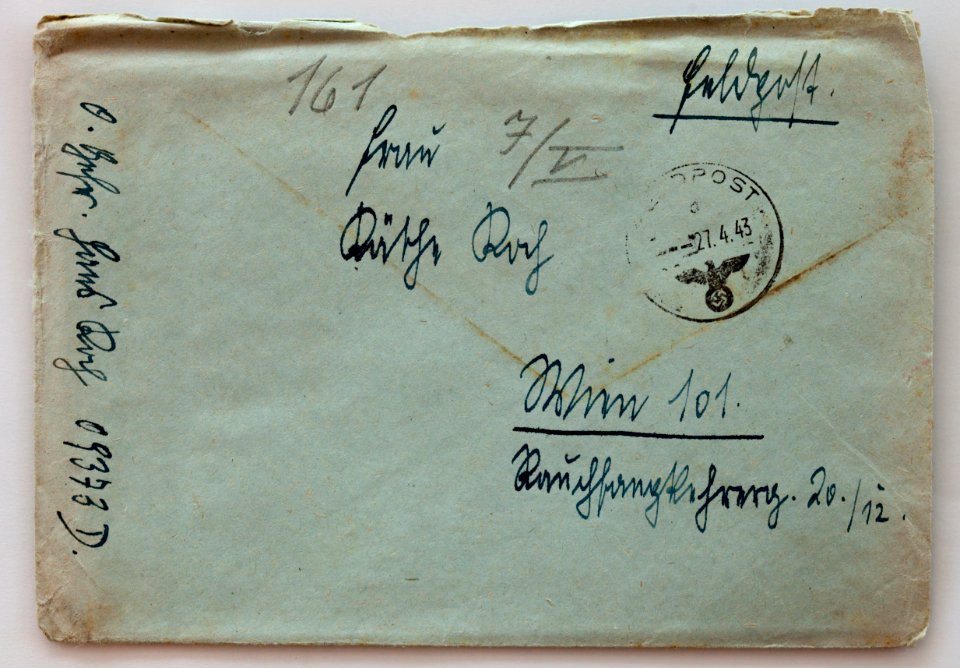 161
Feldpost.
Frau 7/V.
Käthe Koch
DPOST
27.4.43
Wien 101.
Rauchfangkehrerg. 20./12.
O. Gefr. Hans Koch 09373 D.